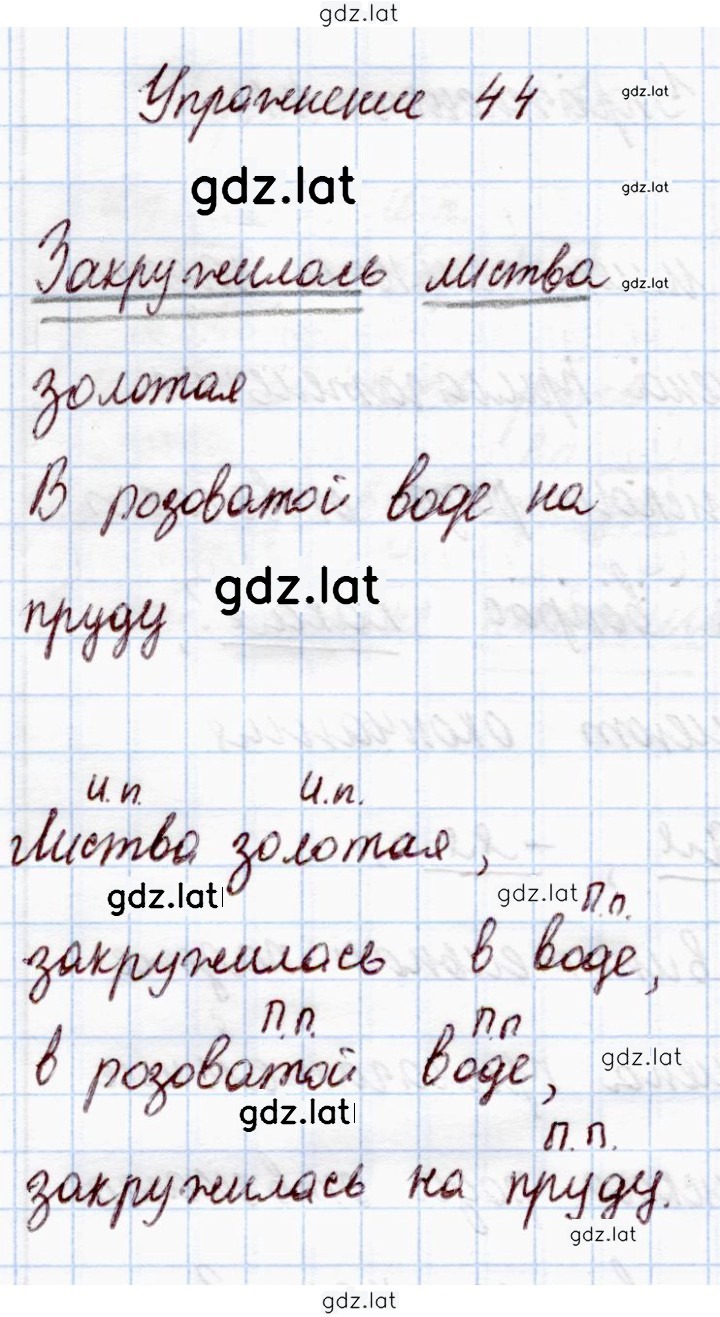 gdz.lat
Упражнение 44
gdz.lat
gdz.lat
gdz.lat
Закружилась листва
gdz.lat
золотая
В розоватой воде на
gdz.lat
пруду.
И.п. И.п.
Листва золотая,
gdz.lat
gdz.lat
П.п.
закружилась в воде,
П.п. П.п
в розоватой воде,
gdz.lat
gdz.lat
П.п.
закружилась на пруду.
gdz.lat
gdz.lat